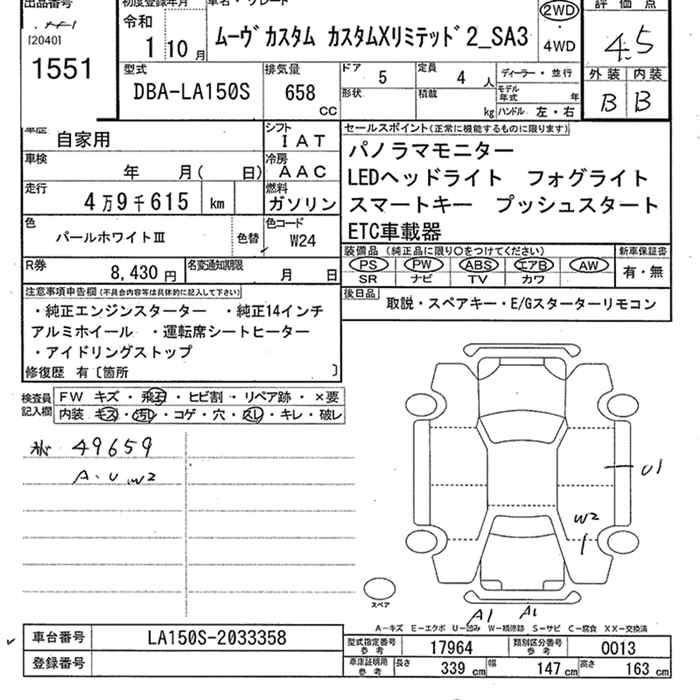 出品番号
[2040]
1551
初度登録年月
令和
1 10 月
車名・グレード
ムーヴカスタム カスタムXリミテッド2_SA3
2WD
・
4WD
評価点
4.5
外装 内装
B B
型式
DBA-LA150S
排気量
658
CC
ドア 5
定員 4 人
形状
積載 kg
ディーラー・並行
モデル
年式 年
ハンドル 左・右
車歴 自家用
シフト
IAT
車検 年 月( 日)
冷房
AAC
走行 4万9千615 km
燃料
ガソリン
色 パールホワイトⅢ
色替
色コード
W24
R券 8,430 円
名変通知期限 月 日
セールスポイント(正常に機能するものに限ります)
パノラマモニター
LEDヘッドライト フォグライト
スマートキー プッシュスタート
ETC車載器
装備品 (純正品に限り○をつけてください)
PS PW ABS エアB AW
SR ナビ TV カワ
新車保証書
有・無
後日品
取説・スペアキー・E/Gスターターリモコン
注意事項申告欄(不具合内容等は具体的に記入して下さい)
・純正エンジンスターター ・純正14インチ
アルミホイール ・運転席シートヒーター
・アイドリングストップ
修復歴 有〔箇所 〕
検査員
記入欄
FW キズ・飛石・ヒビ割・リペア跡・×要
内装 キズ・汚れ・コゲ・穴・スレ・キレ・破レ
49659
A.U.W2
U1
W2
A1 A1
スペア
A-キズ E-エクボ U-凹み W-補修跡 S-サビ C-腐食 XX-交換済
車台番号 LA150S-2033358
登録番号
型式指定番号
参考
17964
類別区分番号
参考
0013
車庫証明用
参考
長さ 339 cm
幅 147 cm
高さ 163 cm